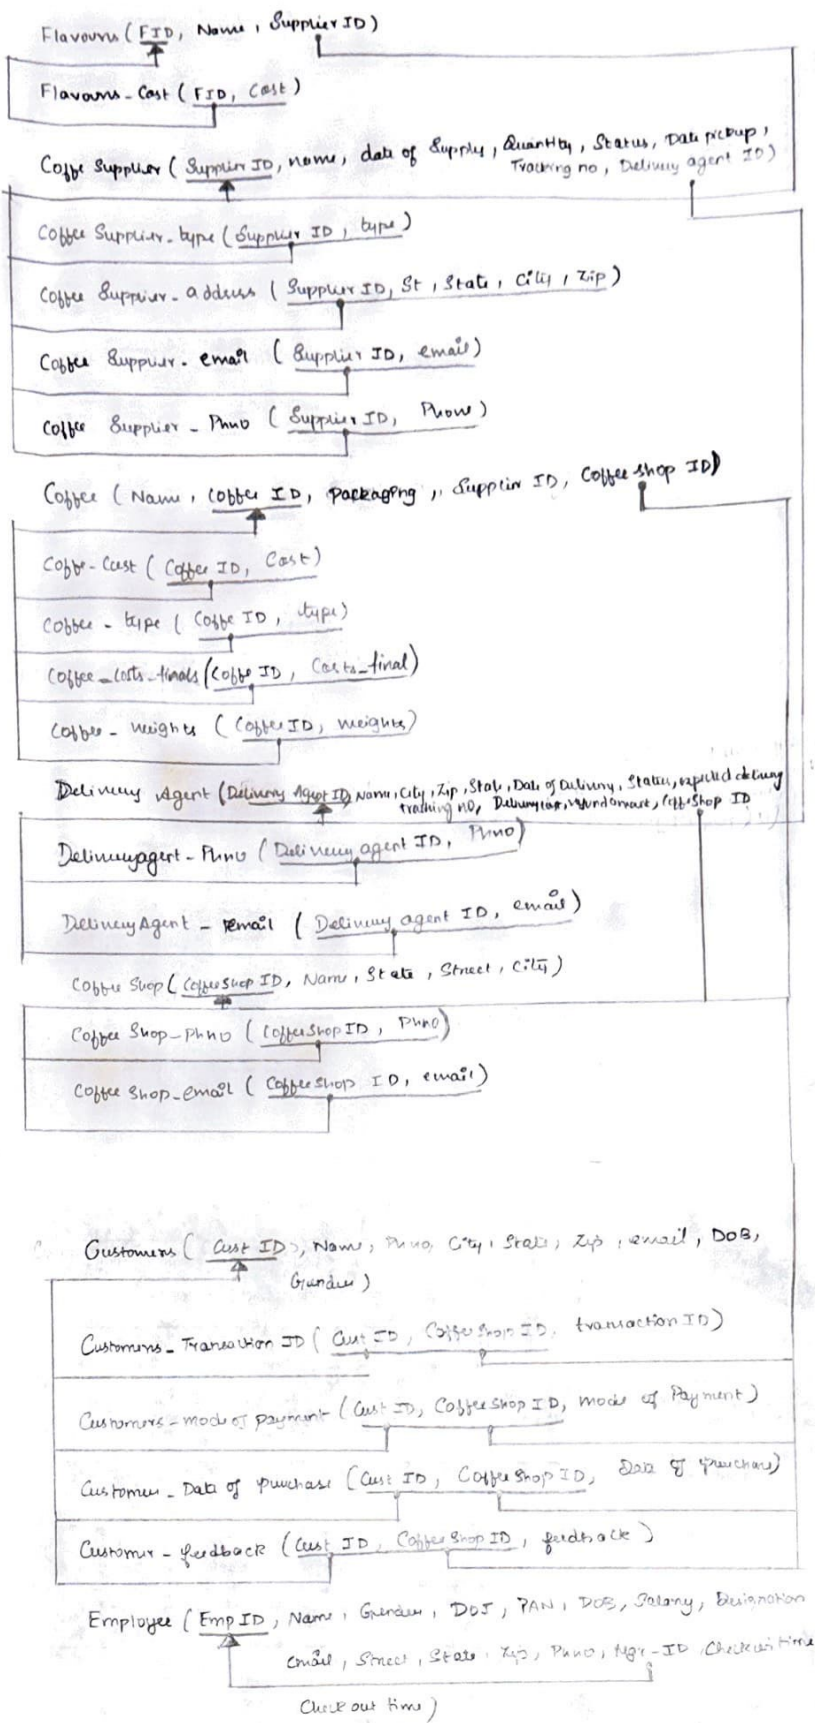 Flavours (FID, Name, Supplier ID)
Flavours_Cost (FID, Cost)
Coffe Supplier (Supplier ID, name, date of Supply, Quantity, Status, Date pickup,
Tracking no, Delivery agent ID)
Coffee Supplier_type (Supplier ID, type)
Coffee Supplier_address (Supplier ID, St, State, City, Zip)
Coffee Supplier_email (Supplier ID, email)
Coffee Supplier_Phno (Supplier ID, Phone)
Coffee (Name, Coffee ID, packaging, Supplier ID, Coffee shop ID)
Coffe-Cost (Coffee ID, Cost)
Coffee-type (Coffe ID, type)
Coffee_costs_finals (Coffe ID, Costs_final)
Coffee_weights (Coffee ID, weights)
Delivery Agent (Delivery Agent ID, Name, City, Zip, State, Date of Delivery, Status, expected delivery
tracking no, Coffee Shop ID
Deliveryagent-Phno (Delivery agent ID, Phno)
Delivery Agent-email (Delivery agent ID, email)
Coffee Shop (Coffee Shop ID, Name, State, Street, City)
Coffee Shop-Phno (Coffee Shop ID, Phno)
Coffee Shop_email (Coffee Shop ID, email)
Customers (Cust ID, Name, Phno, City, State, Zip, email, DOB,
Gender)
Customers_Transaction ID (Cust ID, Coffee Shop ID, transaction ID)
Customers-mode of payment (Cust ID, Coffee Shop ID, mode of Payment)
Customer_Date of purchase (Cust ID, Coffee Shop ID, Date of purchase)
Customer-feedback (Cust ID, Coffee Shop ID, feedback)
Employee (Emp ID, Name, Gender, DOJ, PAN, DOB, Salary, Designation
email, Street, State, Zip, Phno, Mgr-ID, Check in time
Check out time)